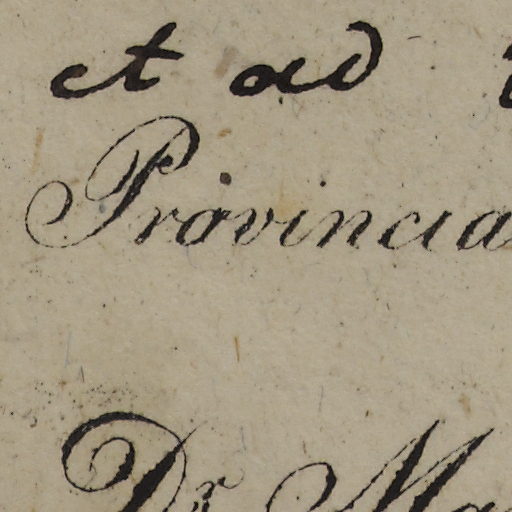 et ad
Provincia
Dr Ma